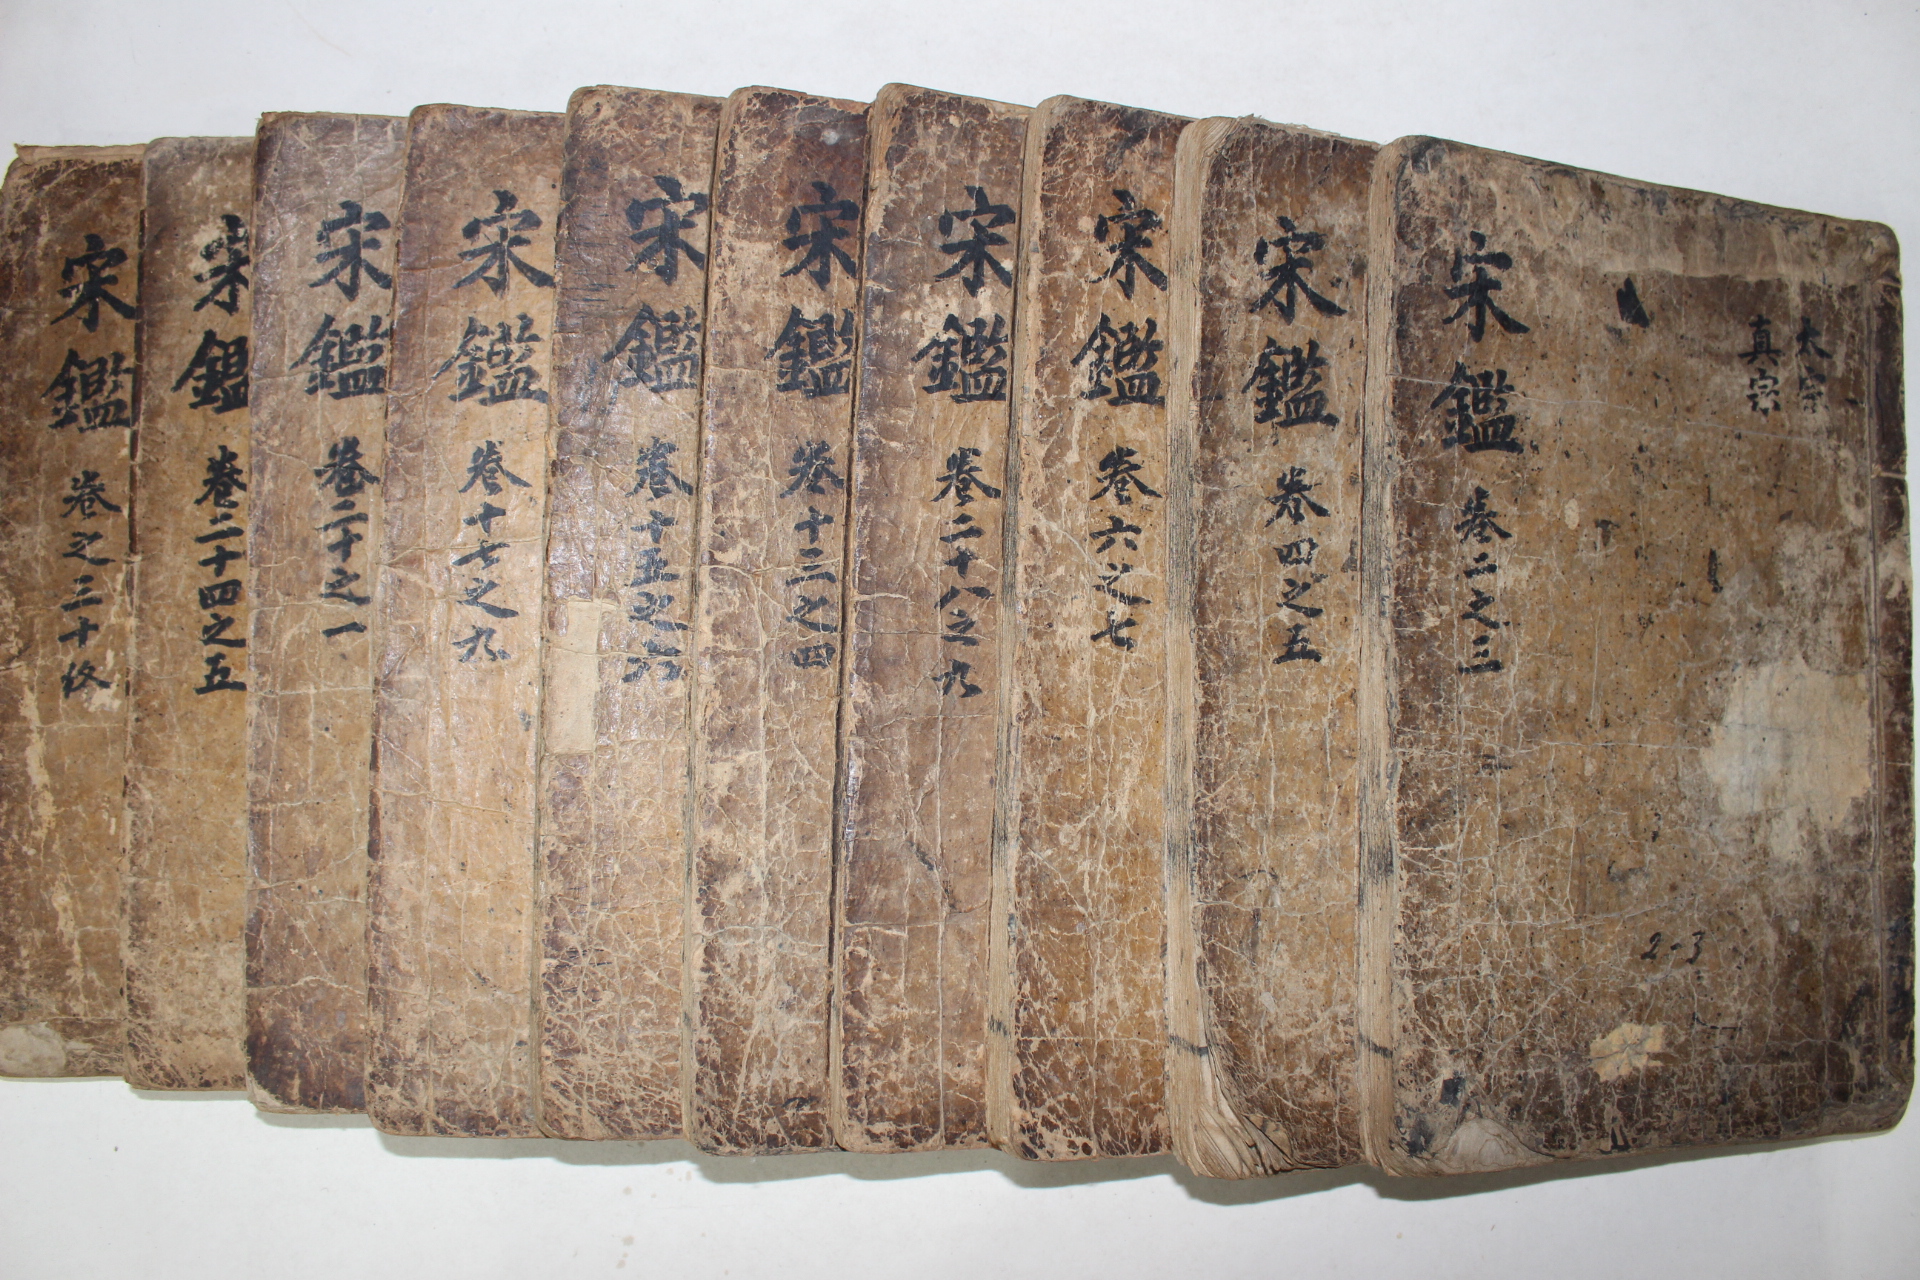 太宗
真宗
宋鑑 卷二之三
2-3
宋鑑 卷四之五
宋鑑 卷六之七
宋鑑 卷二十八之九
宋鑑 卷十三之四
宋鑑 卷十五之六
宋鑑 卷十七之九
宋鑑 卷二十之一
宋鑑 卷二十四之五
宋鑑 卷之三十終